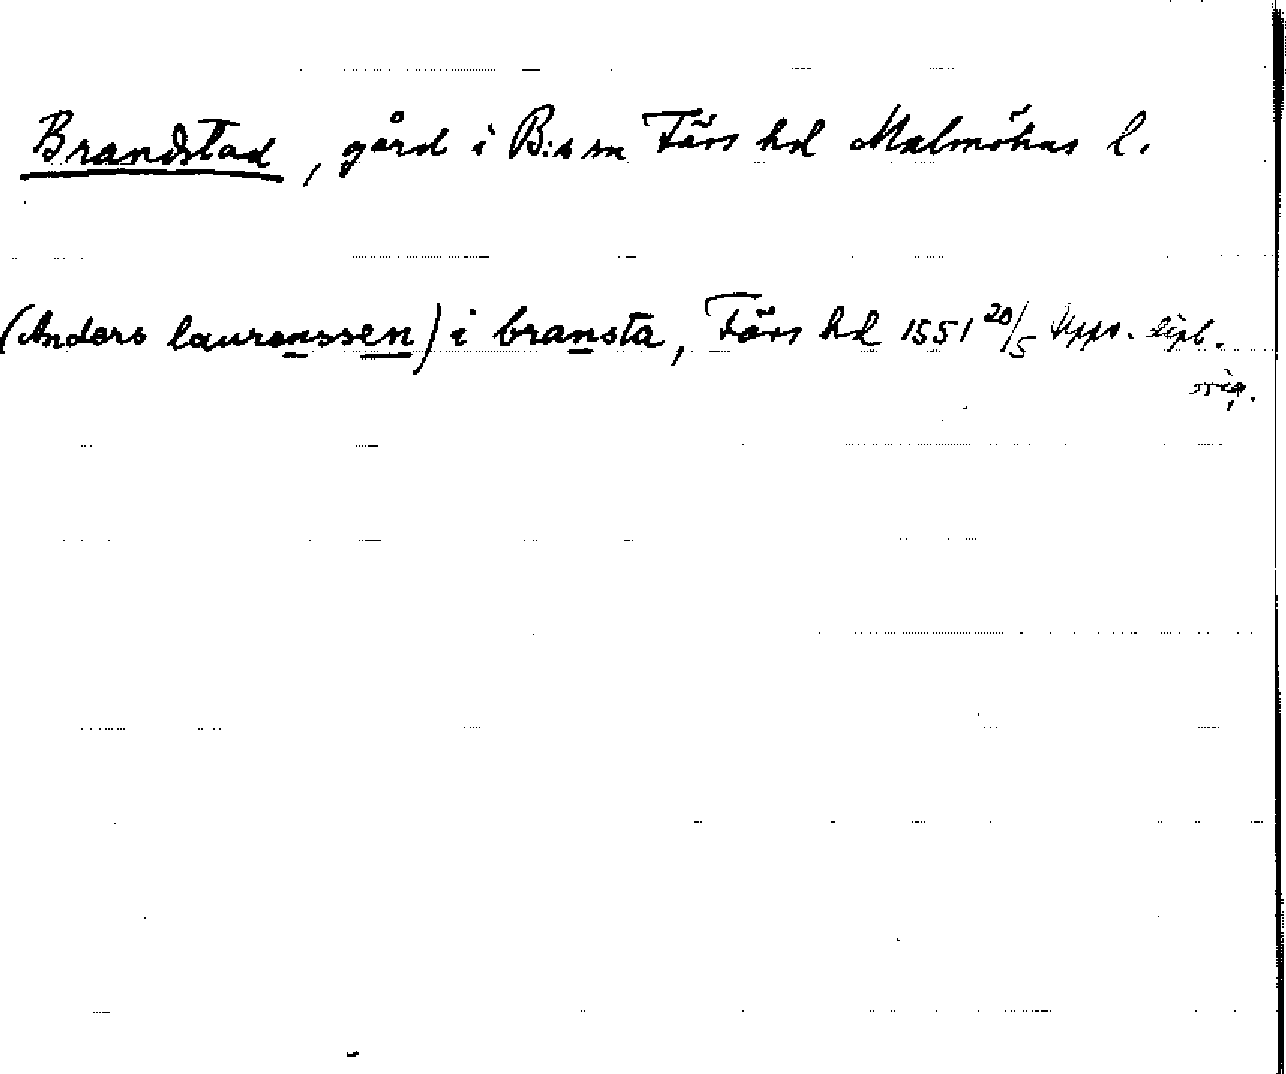 Brandstad, gård i B:s sn Färs hd Malmöhus l.
(Anders laurenssen) i bransta, Färs hd 1551 20/5 Upps. dipl.
orig.